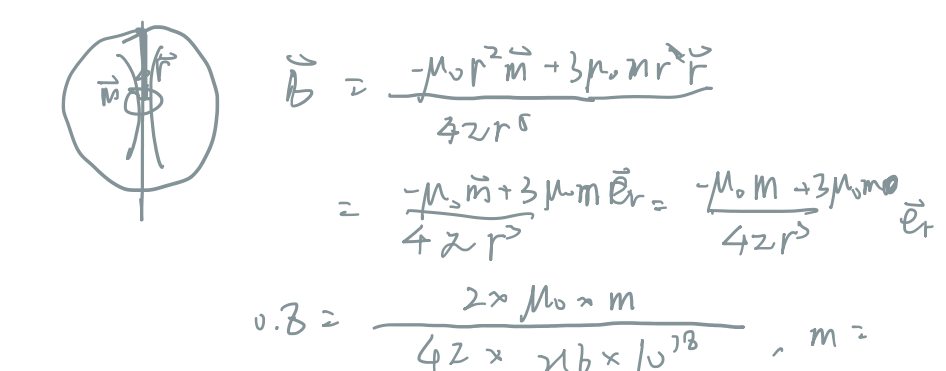 m⃗ r⃗
B⃗ = (-μ₀r²m⃗ + 3μ₀mr r⃗) / (4πr⁵)
= (-μ₀m⃗ + 3μ₀m e⃗ᵣ) / (4πr³) = (-μ₀m + 3μ₀m) / (4πr³) e⃗ᵣ
0.8 = (2 × μ₀ × m) / (4π × 216 × 10¹⁸) , m =